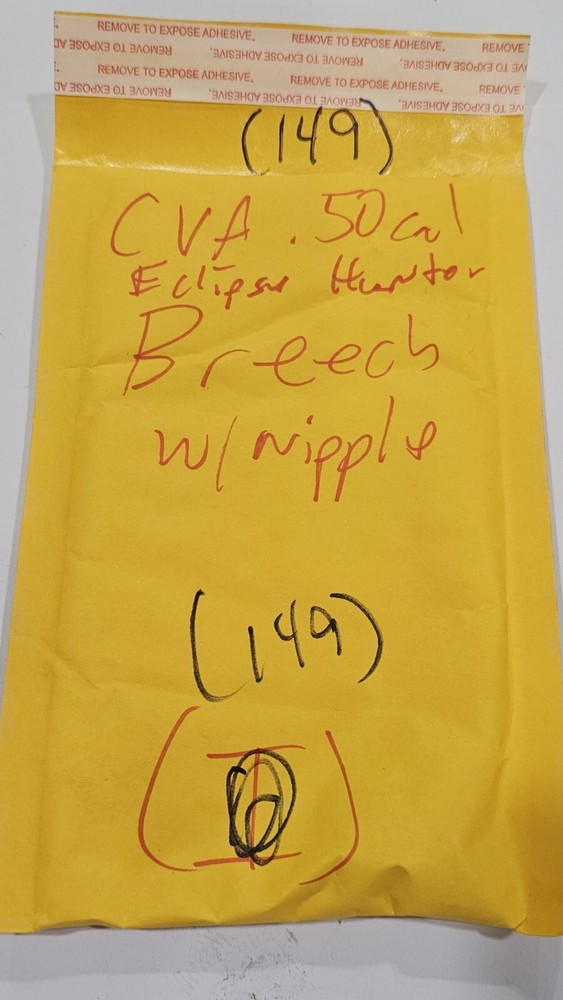 REMOVE TO EXPOSE ADHESIVE. REMOVE TO EXPOSE ADHESIVE. REMOVE
REMOVE TO EXPOSE ADHESIVE. REMOVE TO EXPOSE ADHESIVE.
REMOVE TO EXPOSE ADHESIVE. REMOVE TO EXPOSE ADHESIVE. REMOVE
REMOVE TO EXPOSE ADHESIVE. REMOVE TO EXPOSE ADHESIVE.
(149)
CVA .50 cal
Eclipse Hunter
Breech
w/ Nipple
(149)